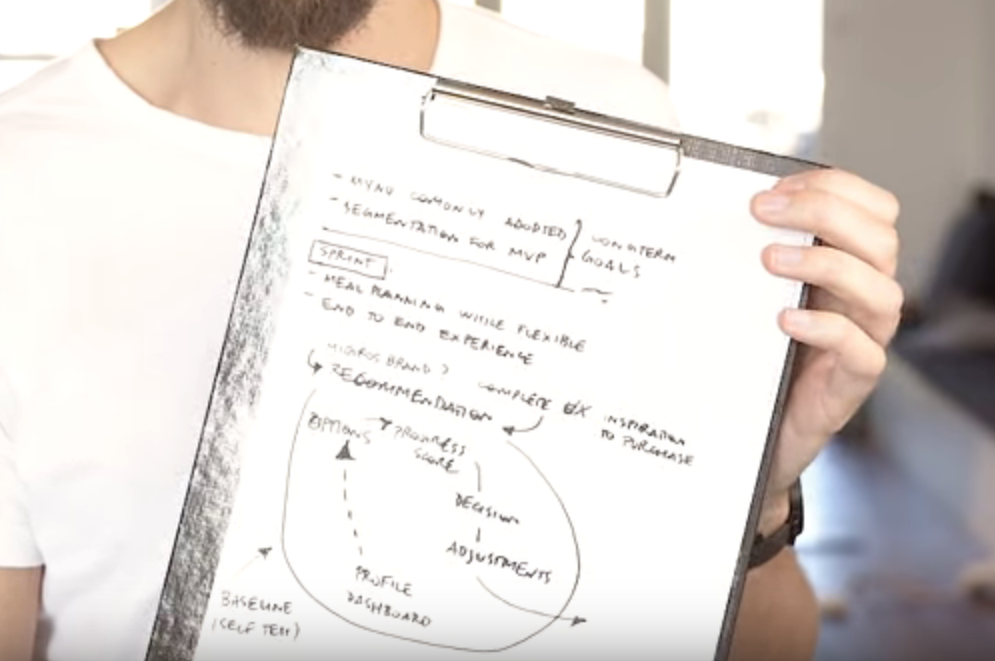 - COMONLY ADOPTED
- SEGMENTATION FOR MVP
LONGTERM
GOALS
SPRINT
- MEAL PLANNING WHILE FLEXIBLE
- END TO END EXPERIENCE
MIGROS BRAND?
RECOMMENDATION
COMPLETE
INSPIRATION
TO PURCHASE
OPTIONS
PROGRESS
SCORE
DECISION
ADJUSTMENTS
PROFILE
DASHBOARD
BASELINE
(SELF TEST)